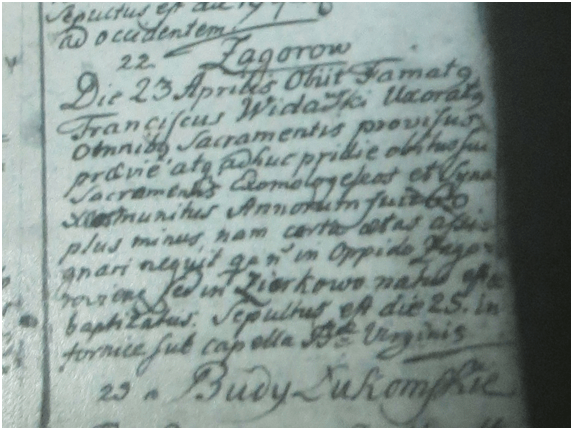 Sepultus est die
ad occidentem
22. Zagorow
Die 23 Aprilis Obiit Famatq
Franciscus Widaski Uxoratq
Omnibq Sacramentis provisus
prævie atq adhuc pridie obitus sui
Sacramentis Exomologeseos et Syna
xeos munitus Annorum fuit 60
plus minus, nam certa ætas assi-
gnari nequit qa nō in Oppido Zagor
sed in Zierkowo natus est &
baptizatus. Sepultus est die 25. in
fornice sub capella Btæ Virginis
23 Budy Łukomskie